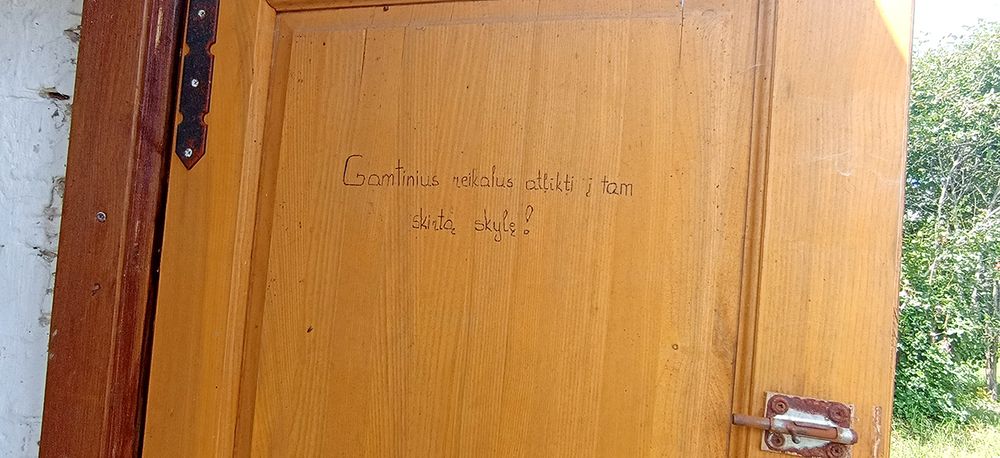 Gamtinius reikalus atlikti į tam
skirtą skylę!